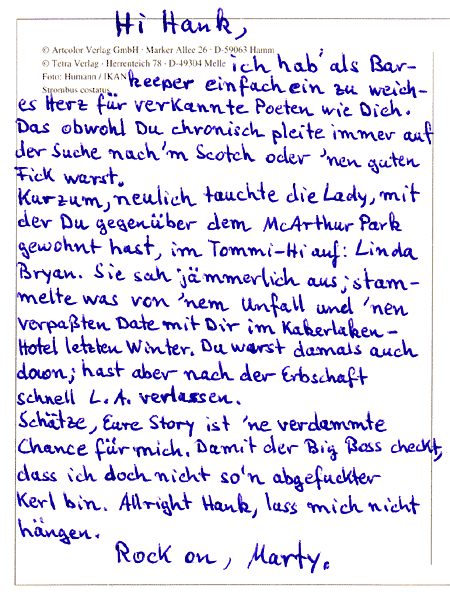 Hi Hank,
© Artcolor Verlag GmbH · Marker Allee 26 · D-59063 Hamm
© Tetra Verlag · Herrenteich 78 · D-49304 Melle
Foto: Humann / IKAN
Strombus costatus
ich hab' als Bar-
keeper einfach ein zu weich-
es Herz für verkannte Poeten wie Dich.
Das obwohl Du chronisch pleite immer auf
der Suche nach'm Scotch oder 'nen guten
Fick warst.
Kurzum, neulich tauchte die Lady, mit
der Du gegenüber dem McArthur Park
gewohnt hast, im Tommi-Hi auf: Linda
Bryan. Sie sah jämmerlich aus; stam-
melte was von 'nem Unfall und 'nen
verpaßten Date mit Dir im Kakerlaken-
Hotel letzten Winter. Du warst damals auch
down; hast aber nach der Erbschaft
schnell L.A. verlassen.
Schätze, Eure Story ist 'ne verdammte
Chance für mich. Damit der Big Boss checkt,
dass ich doch nicht so'n abgefuckter
Kerl bin. Allright Hank, lass mich nicht
hängen.
Rock on, Marty.